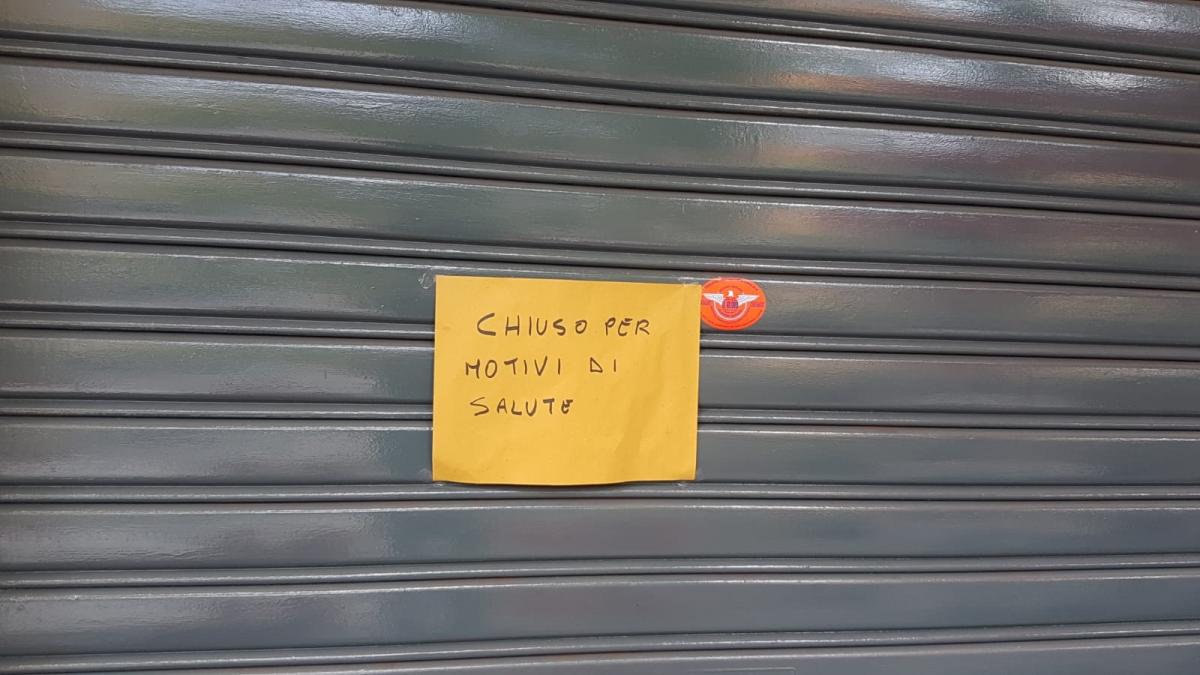 CHIUSO PER
MOTIVI DI
SALUTE